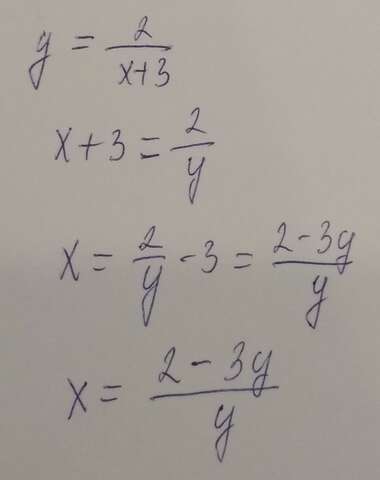 y = 2/(x+3)
x+3 = 2/y
x = 2/y - 3 = (2-3y)/y
x = (2-3y)/y